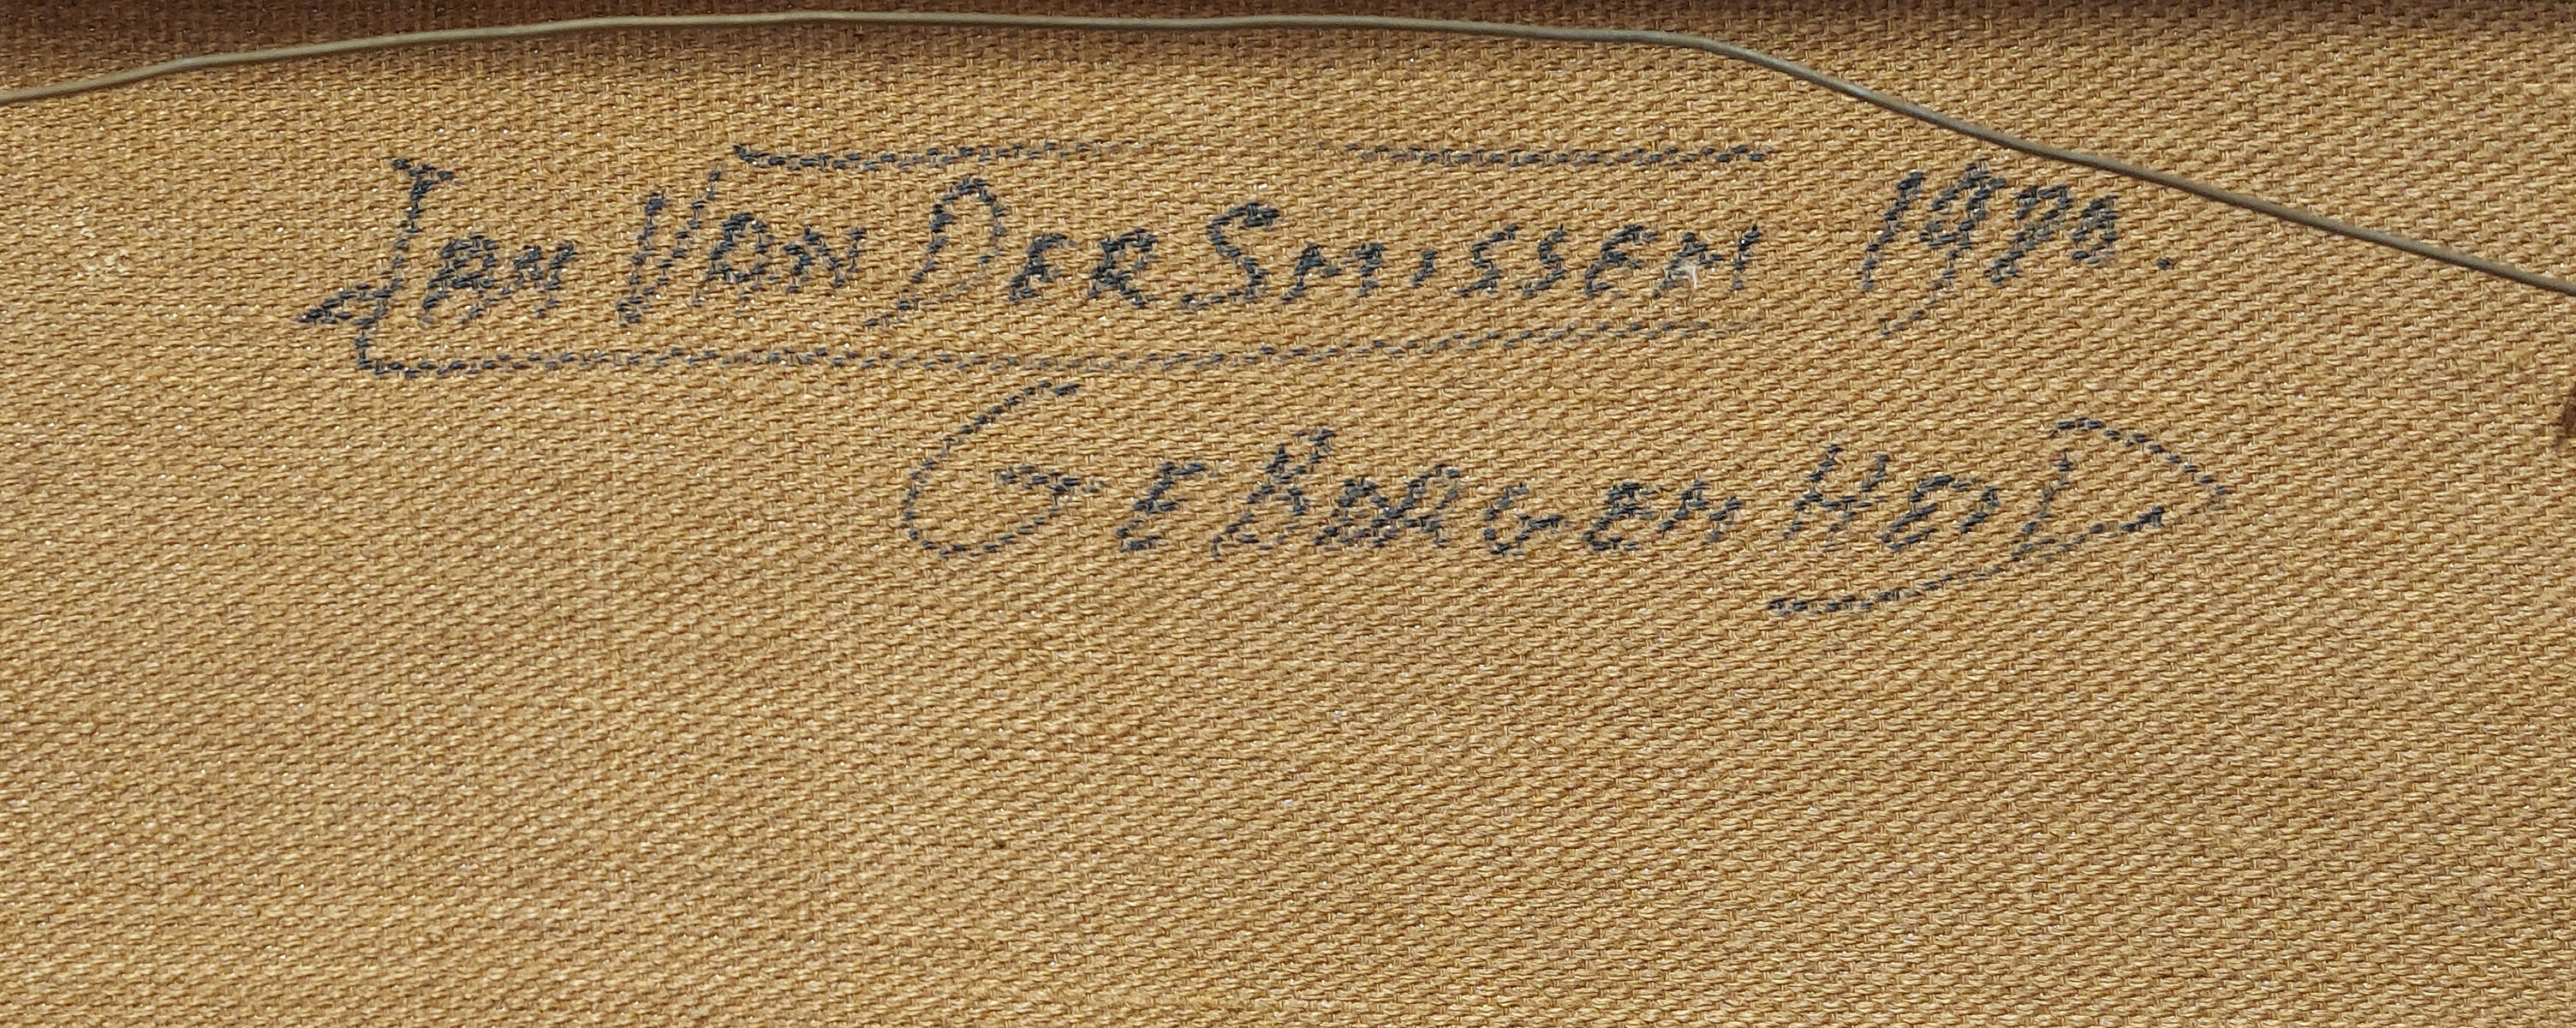 JAN VAN DER SMISSEN 1970.
GEBORGENHEID